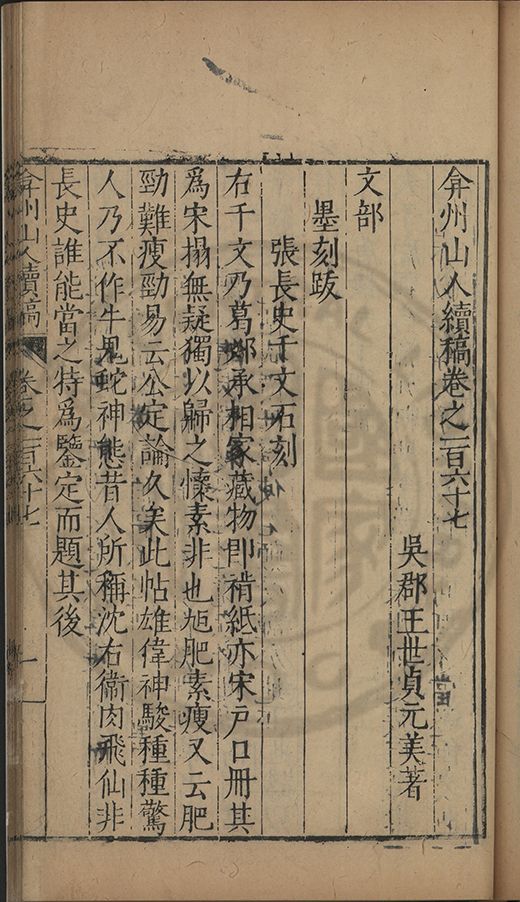 弇州山人續稿卷之一百六十七
吳郡王世貞元美著
文部
墨刻跋
張長史千文石刻
右千文乃葛鄒承相家藏物即褙紙亦宋戶口冊其
爲宋搨無疑獨以歸之懷素非也旭肥素瘦又云肥
勁難瘦勁易云公定論久矣此帖雄偉神駿種種驚
人乃不作牛鬼蛇神態昔人所稱沈右衛肉飛仙非
長史誰能當之特爲鑒定而題其後
弇州山人續稿
卷之一百六十七
一